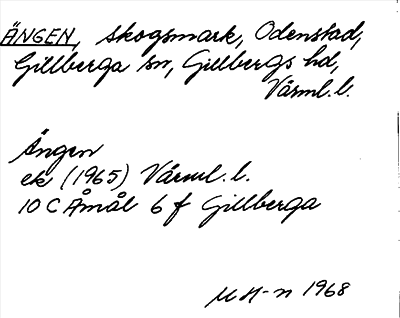 ÄNGEN, skogsmark, Odenstad,
Gillberga sn, Gillbergs hd,
Värml. l.
Ängen
ek (1965) Värml. l.
10 C Åmål 6 f Gillberga
M H-n 1968